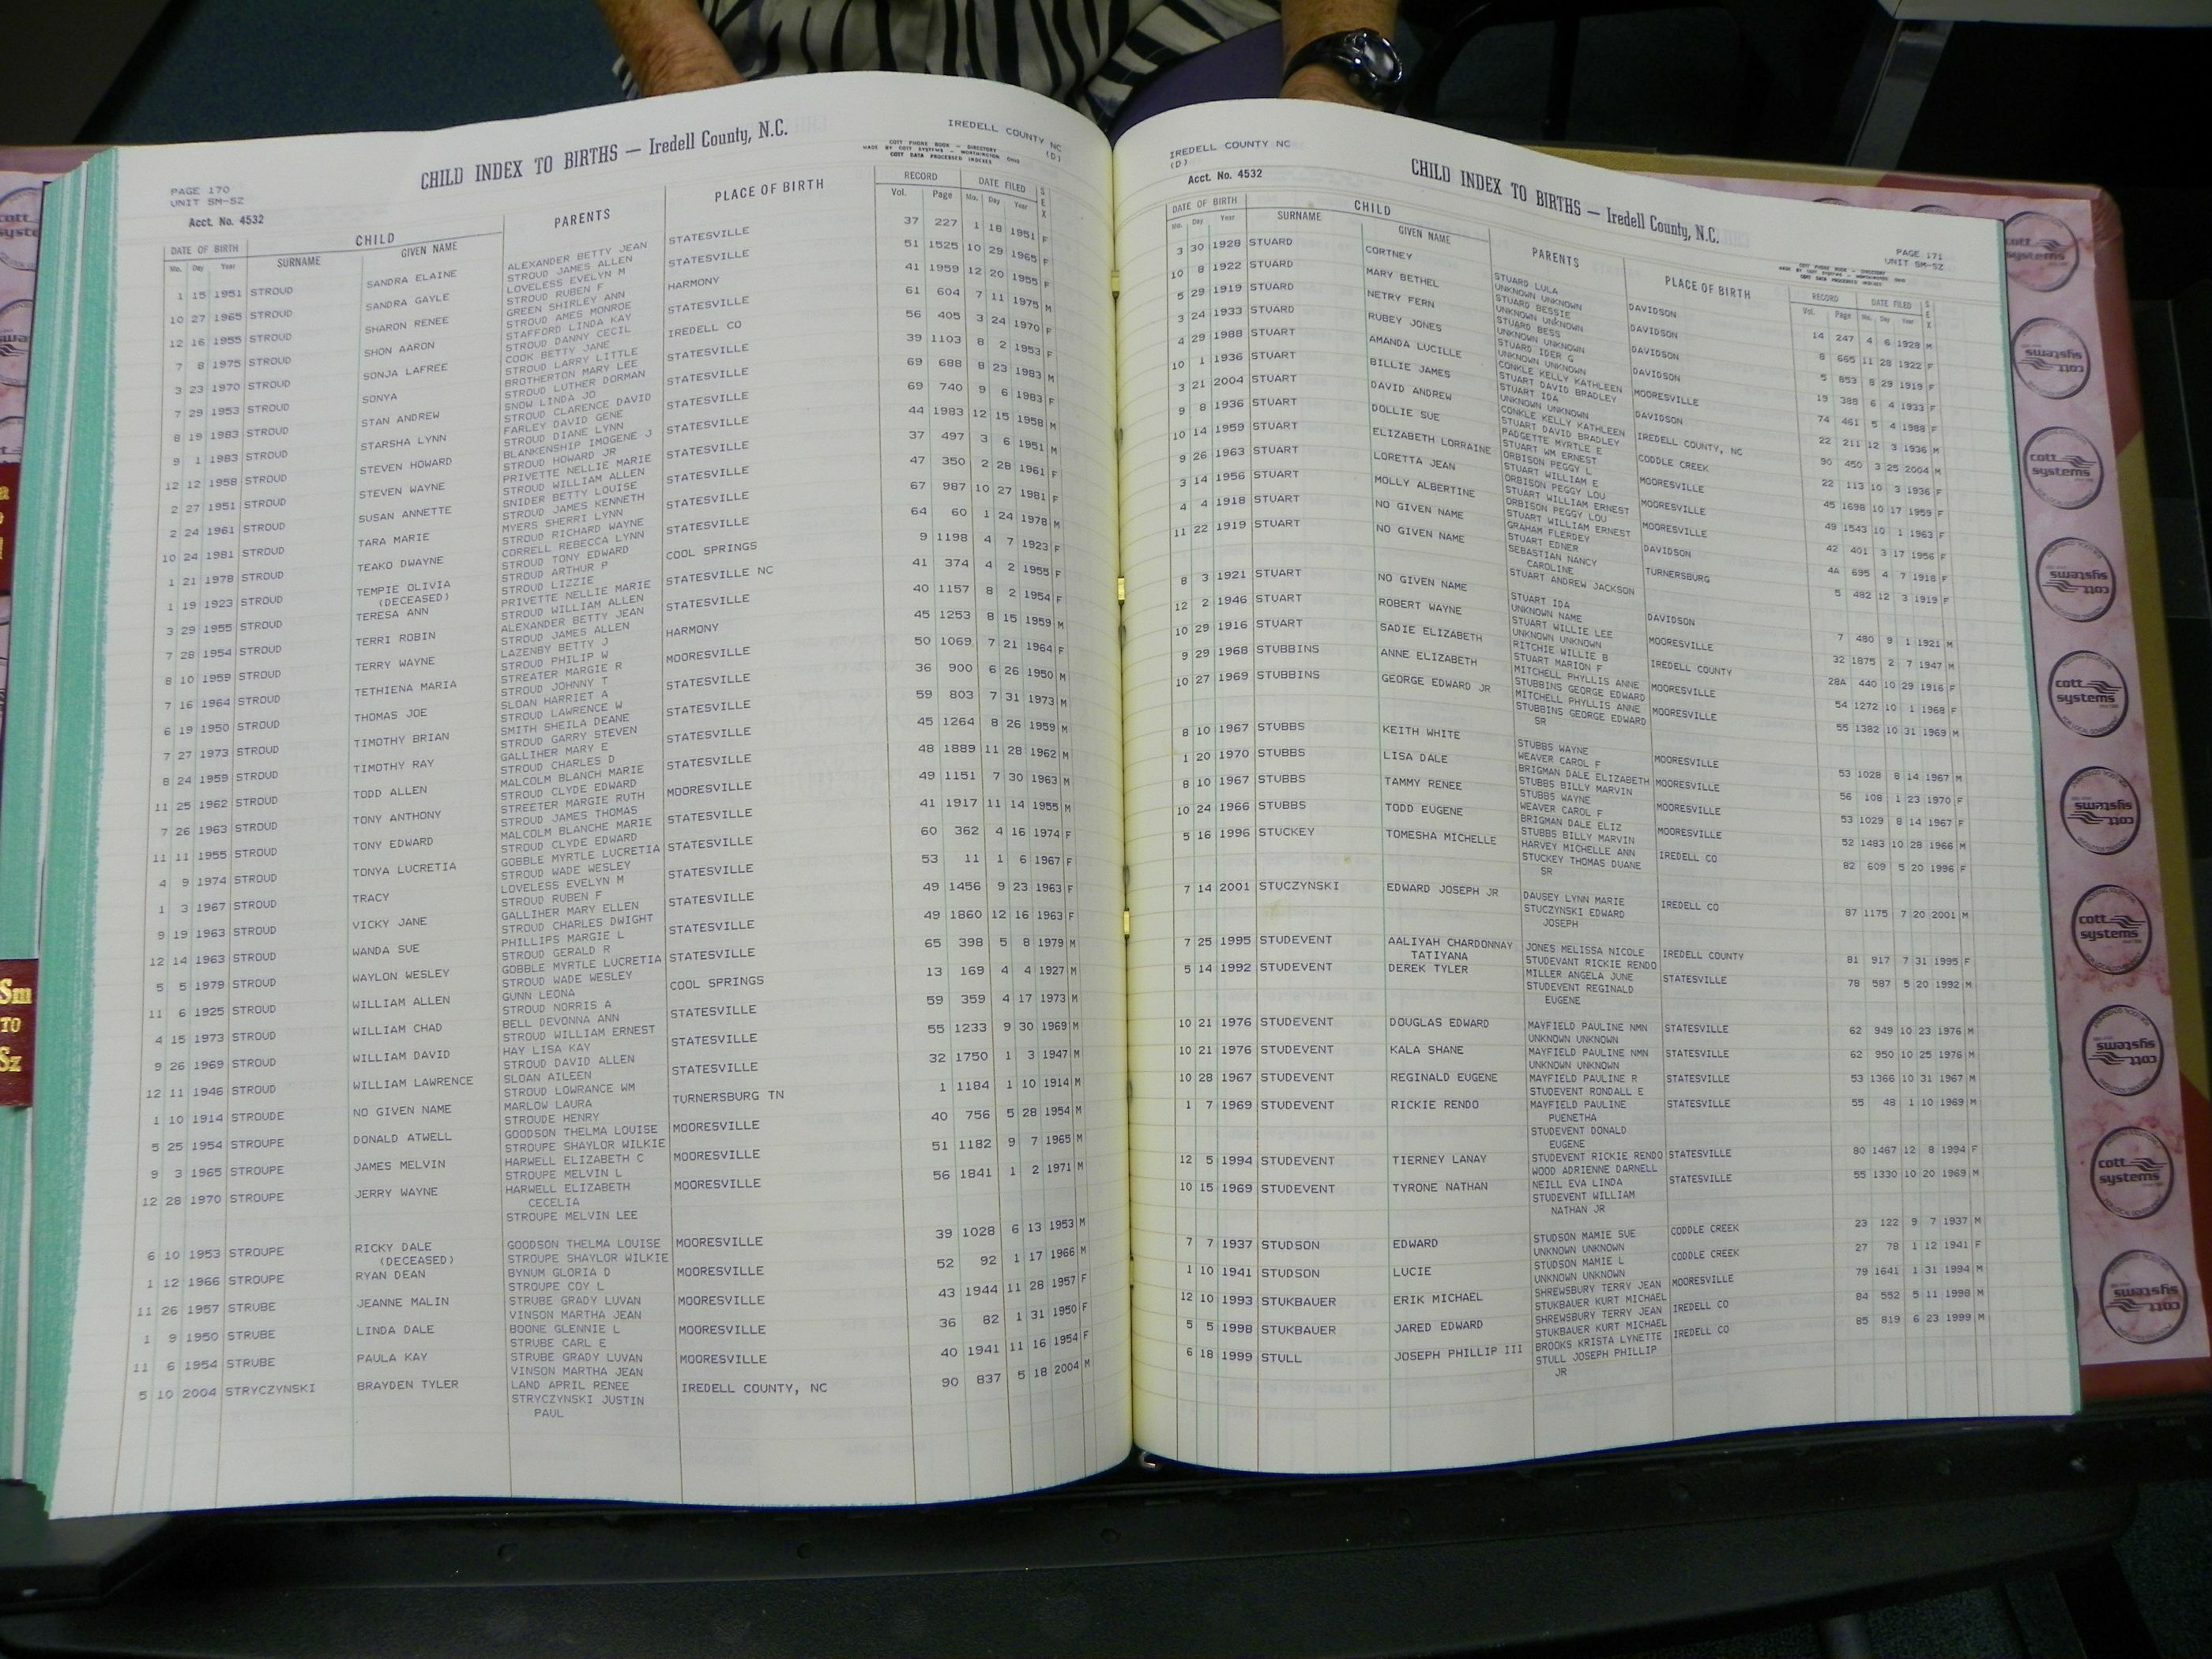 CHILD INDEX TO BIRTHS — Iredell County, N.C.
IREDELL COUNTY NC
(D)
COTT PHONE BOOK — DIRECTORY
MADE BY COTT SYSTEMS — WORTHINGTON OHIO
COTT DATA PROCESSED INDEXES
PAGE 170
UNIT SM-SZ
Acct. No. 4532
DATE OF BIRTH CHILD PARENTS PLACE OF BIRTH RECORD DATE FILED SEX
Mo. Day Year SURNAME GIVEN NAME Vol. Page Mo. Day Year
1 15 1951 STROUD SANDRA ELAINE ALEXANDER BETTY JEAN STATESVILLE 37 227 1 18 1951 F
STROUD JAMES ALLEN
10 27 1965 STROUD SANDRA GAYLE LOVELESS EVELYN M STATESVILLE 51 1525 10 29 1965 F
STROUD RUBEN F
12 16 1955 STROUD SHARON RENEE GREEN SHIRLEY ANN HARMONY 41 1959 12 20 1955 F
STROUD AMES MONROE
7 8 1975 STROUD SHON AARON STAFFORD LINDA KAY STATESVILLE 61 604 7 11 1975 M
STROUD DANNY CECIL
3 23 1970 STROUD SONJA LAFREE COOK BETTY JANE IREDELL CO 56 405 3 24 1970 F
STROUD LARRY LITTLE
7 29 1953 STROUD SONYA BROTHERTON MARY LEE STATESVILLE 39 1103 8 2 1953 F
STROUD LUTHER DORMAN
8 19 1983 STROUD STAN ANDREW SNOW LINDA JO STATESVILLE 69 688 8 23 1983 M
STROUD CLARENCE DAVID
9 1 1983 STROUD STARSHA LYNN FARLEY DAVID GENE STATESVILLE 69 740 9 6 1983 F
STROUD DIANE LYNN
12 12 1958 STROUD STEVEN HOWARD BLANKENSHIP IMOGENE J STATESVILLE 44 1983 12 15 1958 M
STROUD HOWARD JR
2 27 1951 STROUD STEVEN WAYNE PRIVETTE NELLIE MARIE STATESVILLE 37 497 3 6 1951 M
STROUD WILLIAM ALLEN
2 24 1961 STROUD SUSAN ANNETTE SNIDER BETTY LOUISE STATESVILLE 47 350 2 28 1961 F
STROUD JAMES KENNETH
10 24 1981 STROUD TARA MARIE MYERS SHERRI LYNN STATESVILLE 67 987 10 27 1981 F
STROUD RICHARD WAYNE
1 21 1978 STROUD TEAKO DWAYNE CORRELL REBECCA LYNN STATESVILLE 64 60 1 24 1978 M
STROUD TONY EDWARD
1 19 1923 STROUD TEMPIE OLIVIA STROUD ARTHUR P COOL SPRINGS 9 1198 4 7 1923 F
(DECEASED) STROUD LIZZIE
3 29 1955 STROUD TERESA ANN PRIVETTE NELLIE MARIE STATESVILLE NC 41 374 4 2 1955 F
STROUD WILLIAM ALLEN
7 28 1954 STROUD TERRI ROBIN ALEXANDER BETTY JEAN STATESVILLE 40 1157 8 2 1954 F
STROUD JAMES ALLEN
8 10 1959 STROUD TERRY WAYNE LAZENBY BETTY J HARMONY 45 1253 8 15 1959 M
STROUD PHILIP W
7 16 1964 STROUD TETHIENA MARIA STREATER MARGIE R MOORESVILLE 50 1069 7 21 1964 F
STROUD JOHNNY T
6 19 1950 STROUD THOMAS JOE SLOAN HARRIET A STATESVILLE 36 900 6 26 1950 M
STROUD LAWRENCE W
7 27 1973 STROUD TIMOTHY BRIAN SMITH SHEILA DEANE STATESVILLE 59 803 7 31 1973 M
STROUD GARRY STEVEN
8 24 1959 STROUD TIMOTHY RAY GALLIHER MARY E STATESVILLE 45 1264 8 26 1959 M
STROUD CHARLES D
11 25 1962 STROUD TODD ALLEN MALCOLM BLANCH MARIE STATESVILLE 48 1889 11 28 1962 M
STROUD CLYDE EDWARD
7 26 1963 STROUD TONY ANTHONY STREETER MARGIE RUTH MOORESVILLE 49 1151 7 30 1963 M
STROUD JAMES THOMAS
11 11 1955 STROUD TONY EDWARD MALCOLM BLANCHE MARIE STATESVILLE 41 1917 11 14 1955 M
STROUD CLYDE EDWARD
4 9 1974 STROUD TONYA LUCRETIA GOBBLE MYRTLE LUCRETIA STATESVILLE 60 362 4 16 1974 F
STROUD WADE WESLEY
1 3 1967 STROUD TRACY LOVELESS EVELYN M STATESVILLE 53 11 1 6 1967 F
STROUD RUBEN F
9 19 1963 STROUD VICKY JANE GALLIHER MARY ELLEN STATESVILLE 49 1456 9 23 1963 F
STROUD CHARLES DWIGHT
12 14 1963 STROUD WANDA SUE PHILLIPS MARGIE L STATESVILLE 49 1860 12 16 1963 F
STROUD GERALD R
5 5 1979 STROUD WAYLON WESLEY GOBBLE MYRTLE LUCRETIA STATESVILLE 65 398 5 8 1979 M
STROUD WADE WESLEY
11 6 1925 STROUD WILLIAM ALLEN GUNN LEONA COOL SPRINGS 13 169 4 4 1927 M
STROUD NORRIS A
4 15 1973 STROUD WILLIAM CHAD BELL DEVONNA ANN STATESVILLE 59 359 4 17 1973 M
STROUD WILLIAM ERNEST
9 26 1969 STROUD WILLIAM DAVID HAY LISA KAY STATESVILLE 55 1233 9 30 1969 M
STROUD DAVID ALLEN
12 11 1946 STROUD WILLIAM LAWRENCE SLOAN AILEEN STATESVILLE 32 1750 1 3 1947 M
STROUD LOWRANCE WM
1 10 1914 STROUDE NO GIVEN NAME MARLOW LAURA TURNERSBURG TN 1 1184 1 10 1914 M
STROUDE HENRY
5 25 1954 STROUPE DONALD ATWELL GOODSON THELMA LOUISE MOORESVILLE 40 756 5 28 1954 M
STROUPE SHAYLOR WILKIE
9 3 1965 STROUPE JAMES MELVIN HARWELL ELIZABETH C MOORESVILLE 51 1182 9 7 1965 M
STROUPE MELVIN L
12 28 1970 STROUPE JERRY WAYNE HARWELL ELIZABETH MOORESVILLE 56 1841 1 2 1971 M
CECELIA
STROUPE MELVIN LEE
6 10 1953 STROUPE RICKY DALE GOODSON THELMA LOUISE MOORESVILLE 39 1028 6 13 1953 M
(DECEASED) STROUPE SHAYLOR WILKIE
1 12 1966 STROUPE RYAN DEAN BYNUM GLORIA D MOORESVILLE 52 92 1 17 1966 M
STROUPE COY L
11 26 1957 STRUBE JEANNE MALIN STRUBE GRADY LUVAN MOORESVILLE 43 1944 11 28 1957 F
VINSON MARTHA JEAN
1 9 1950 STRUBE LINDA DALE BOONE GLENNIE L MOORESVILLE 36 82 1 31 1950 F
STRUBE CARL E
11 6 1954 STRUBE PAULA KAY STRUBE GRADY LUVAN MOORESVILLE 40 1941 11 16 1954 F
VINSON MARTHA JEAN
5 10 2004 STRYCZYNSKI BRAYDEN TYLER LAND APRIL RENEE IREDELL COUNTY, NC 90 837 5 18 2004 M
STRYCZYNSKI JUSTIN
PAUL
IREDELL COUNTY NC
(D)
Acct. No. 4532
CHILD INDEX TO BIRTHS — Iredell County, N.C.
COTT PHONE BOOK — DIRECTORY
MADE BY COTT SYSTEMS — WORTHINGTON OHIO
COTT DATA PROCESSED INDEXES
PAGE 171
UNIT SM-SZ
DATE OF BIRTH CHILD PARENTS PLACE OF BIRTH RECORD DATE FILED SEX
Mo. Day Year SURNAME GIVEN NAME Vol. Page Mo. Day Year
3 30 1928 STUARD CORTNEY STUARD LULA DAVIDSON 14 247 4 6 1928 M
UNKNOWN UNKNOWN
10 8 1922 STUARD MARY BETHEL STUARD BESSIE DAVIDSON 8 665 11 28 1922 F
UNKNOWN UNKNOWN
5 29 1919 STUARD NETRY FERN STUARD BESS DAVIDSON 5 853 8 29 1919 F
UNKNOWN UNKNOWN
3 24 1933 STUARD RUBEY JONES STUARD IDER G DAVIDSON 19 388 6 4 1933 F
UNKNOWN UNKNOWN
4 29 1988 STUART AMANDA LUCILLE CONKLE KELLY KATHLEEN MOORESVILLE 74 461 5 4 1988 F
STUART DAVID BRADLEY
10 1 1936 STUART BILLIE JAMES STUART IDA DAVIDSON 22 211 12 3 1936 M
UNKNOWN UNKNOWN
3 21 2004 STUART DAVID ANDREW CONKLE KELLY KATHLEEN IREDELL COUNTY, NC 90 450 3 25 2004 M
STUART DAVID BRADLEY
9 8 1936 STUART DOLLIE SUE PADGETTE MYRTLE E CODDLE CREEK 22 113 10 3 1936 F
STUART WM ERNEST
10 14 1959 STUART ELIZABETH LORRAINE ORBISON PEGGY L MOORESVILLE 45 1698 10 17 1959 F
STUART WILLIAM E
9 26 1963 STUART LORETTA JEAN ORBISON PEGGY LOU MOORESVILLE 49 1543 10 1 1963 F
STUART WILLIAM ERNEST
3 14 1956 STUART MOLLY ALBERTINE ORBISON PEGGY LOU MOORESVILLE 42 401 3 17 1956 F
STUART WILLIAM ERNEST
4 4 1918 STUART NO GIVEN NAME GRAHAM FLERDEY DAVIDSON 4A 695 4 7 1918 F
STUART EDNER
11 22 1919 STUART NO GIVEN NAME SEBASTIAN NANCY TURNERSBURG 5 482 12 3 1919 F
CAROLINE
STUART ANDREW JACKSON
8 3 1921 STUART NO GIVEN NAME STUART IDA DAVIDSON 7 480 9 1 1921 M
UNKNOWN NAME
12 2 1946 STUART ROBERT WAYNE STUART WILLIE LEE MOORESVILLE 32 1875 2 7 1947 M
UNKNOWN UNKNOWN
10 29 1916 STUART SADIE ELIZABETH RITCHIE WILLIE B IREDELL COUNTY 28A 440 10 29 1916 F
STUART MARION F
9 29 1968 STUBBINS ANNE ELIZABETH MITCHELL PHYLLIS ANNE MOORESVILLE 54 1272 10 1 1968 F
STUBBINS GEORGE EDWARD
10 27 1969 STUBBINS GEORGE EDWARD JR MITCHELL PHYLLIS ANNE MOORESVILLE 55 1382 10 31 1969 M
STUBBINS GEORGE EDWARD
SR
8 10 1967 STUBBS KEITH WHITE STUBBS WAYNE MOORESVILLE 53 1028 8 14 1967 M
WEAVER CAROL F
1 20 1970 STUBBS LISA DALE BRIGMAN DALE ELIZABETH MOORESVILLE 56 108 1 23 1970 F
STUBBS BILLY MARVIN
8 10 1967 STUBBS TAMMY RENEE STUBBS WAYNE MOORESVILLE 53 1029 8 14 1967 F
WEAVER CAROL F
10 24 1966 STUBBS TODD EUGENE BRIGMAN DALE ELIZ MOORESVILLE 52 1483 10 28 1966 M
STUBBS BILLY MARVIN
5 16 1996 STUCKEY TOMESHA MICHELLE HARVEY MICHELLE ANN IREDELL CO 82 609 5 20 1996 F
STUCKEY THOMAS DUANE
SR
7 14 2001 STUCZYNSKI EDWARD JOSEPH JR DAUSEY LYNN MARIE IREDELL CO 87 1175 7 20 2001 M
STUCZYNSKI EDWARD
JOSEPH
7 25 1995 STUDEVENT AALIYAH CHARDONNAY JONES MELISSA NICOLE IREDELL COUNTY 81 917 7 31 1995 F
TATIYANA STUDEVANT RICKIE RENDO
5 14 1992 STUDEVENT DEREK TYLER MILLER ANGELA JUNE STATESVILLE 78 587 5 20 1992 M
STUDEVENT REGINALD
EUGENE
10 21 1976 STUDEVENT DOUGLAS EDWARD MAYFIELD PAULINE NMN STATESVILLE 62 949 10 23 1976 M
UNKNOWN UNKNOWN
10 21 1976 STUDEVENT KALA SHANE MAYFIELD PAULINE NMN STATESVILLE 62 950 10 25 1976 M
UNKNOWN UNKNOWN
10 28 1967 STUDEVENT REGINALD EUGENE MAYFIELD PAULINE R STATESVILLE 53 1366 10 31 1967 M
STUDEVENT RONDALL E
1 7 1969 STUDEVENT RICKIE RENDO MAYFIELD PAULINE STATESVILLE 55 48 1 10 1969 M
PUENETHA
STUDEVENT DONALD
EUGENE
12 5 1994 STUDEVENT TIERNEY LANAY STUDEVENT RICKIE RENDO STATESVILLE 80 1467 12 8 1994 F
WOOD ADRIENNE DARNELL
10 15 1969 STUDEVENT TYRONE NATHAN NEILL EVA LINDA STATESVILLE 55 1330 10 20 1969 M
STUDEVENT WILLIAM
NATHAN JR
7 7 1937 STUDSON EDWARD STUDSON MAMIE SUE CODDLE CREEK 23 122 9 7 1937 M
UNKNOWN UNKNOWN
1 10 1941 STUDSON LUCIE STUDSON MAMIE L CODDLE CREEK 27 78 1 12 1941 F
UNKNOWN UNKNOWN
12 10 1993 STUKBAUER ERIK MICHAEL SHREWSBURY TERRY JEAN MOORESVILLE 79 1641 1 31 1994 M
STUKBAUER KURT MICHAEL
5 5 1998 STUKBAUER JARED EDWARD SHREWSBURY TERRY JEAN IREDELL CO 84 552 5 11 1998 M
STUKBAUER KURT MICHAEL
6 18 1999 STULL JOSEPH PHILLIP III BROOKS KRISTA LYNETTE IREDELL CO 85 819 6 23 1999 M
STULL JOSEPH PHILLIP
JR
Sm
TO
Sz
cott
systems
cott
systems
cott
systems
cott
systems
cott
systems
cott
systems
cott
systems
cott
systems
cott
systems
cott
systems